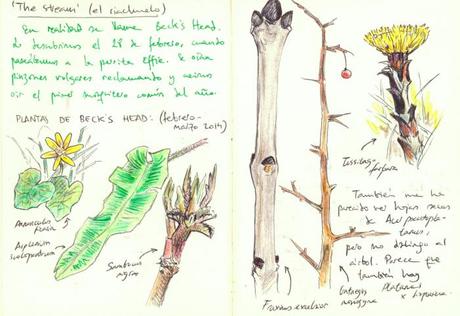 'The stream' (el riachuelo)
En realidad se llama Beck's Head.
Lo descubrimos el 28 de febrero, cuando
paseábamos a la perrita Effie. Se oían
pinzones vulgares reclamando y
oír el primer mosquitero común del año.
PLANTAS DE BECK'S HEAD: (febrero-
marzo 2014)
Ranunculus
ficaria
Asplenium
scolopendrium
Sambucus
nigra
Fraxinus excelsior
Crataegus
monogyna
Tussilago
farfara
También me ha
parecido ver hojas secas
de Acer pseudopla-
tanus,
pero no distingo el
árbol. Parece que
también hay
Platanus
x hispanica.